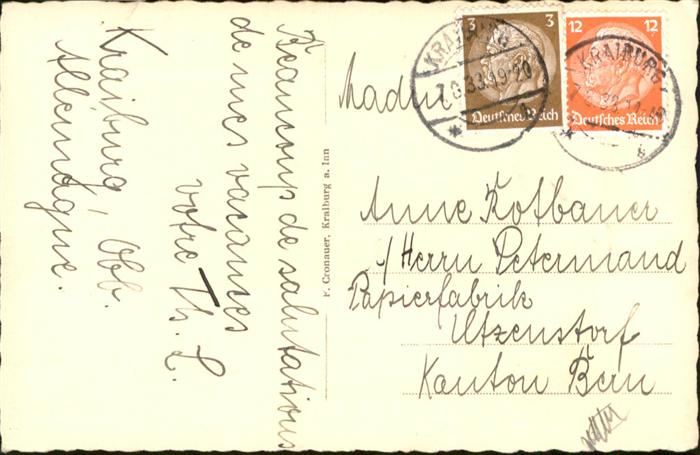 Beaucoup de salutations
de mes vacances
votre Th. L.
Kraiburg, Obb.
Allemagne.
F. Cronauer, Kraiburg a. Inn
3 3
Deutsches Reich
12 12
Deutsches Reich
KRAIBURG
33.19-20
KRAIBURG
Anne Kofbauer
Herrn Petermand
Papierfabrik
Utzenstorf
Kanton Bern